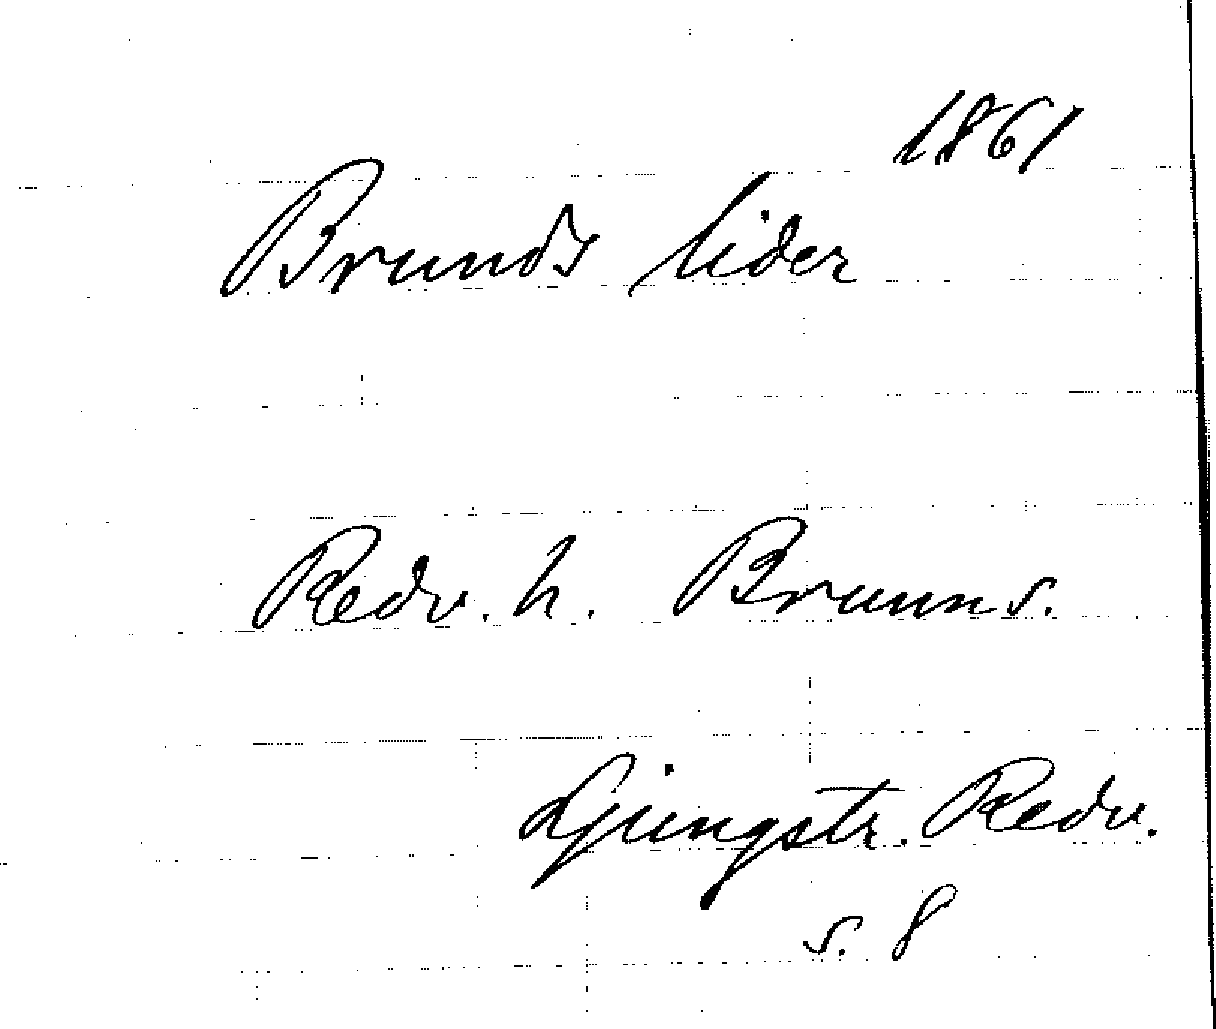 1861
Brunds lider
Redv. h. Brunns.
Ljungstr. Redv.
s. 8